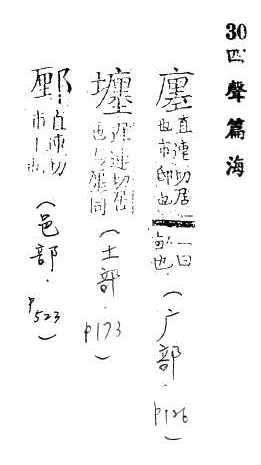 30 四聲篇海
廛 直連切居也市邸也一曰 也 (广部. p126)
壥 連切居也与 同 (土部. p173)
直連切市 (邑部. p523)